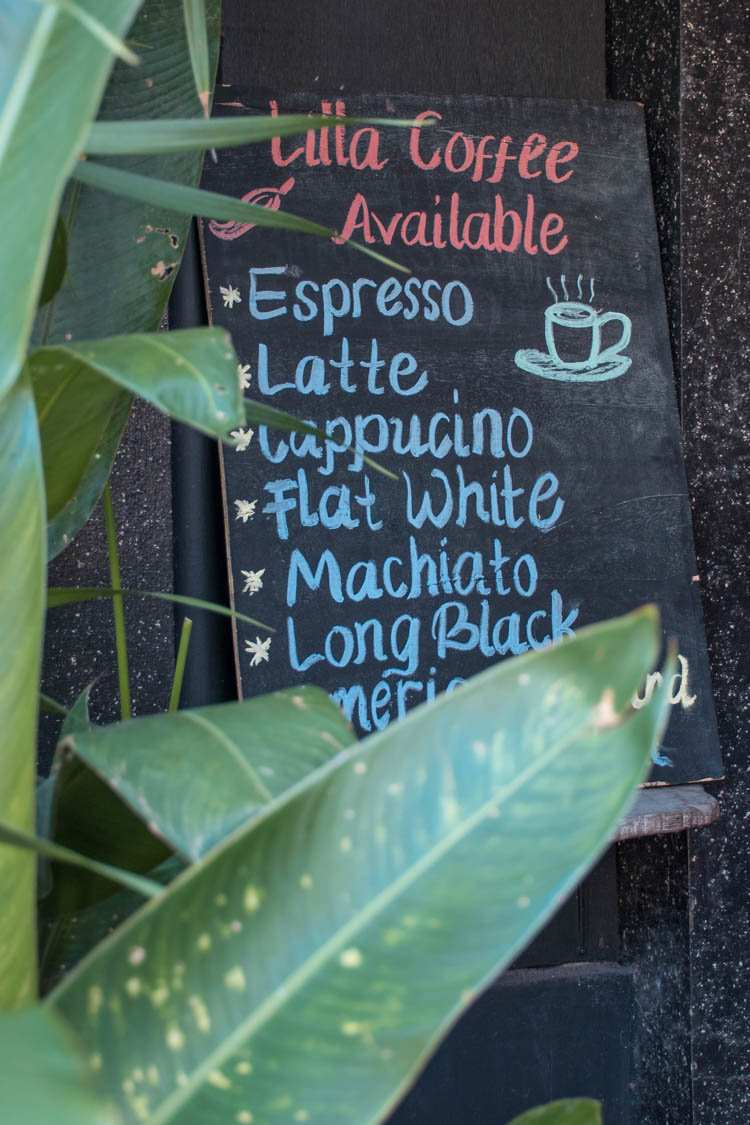 Lilla Coffee
Available
Espresso
Latte
Cappucino
Flat White
Machiato
Long Black